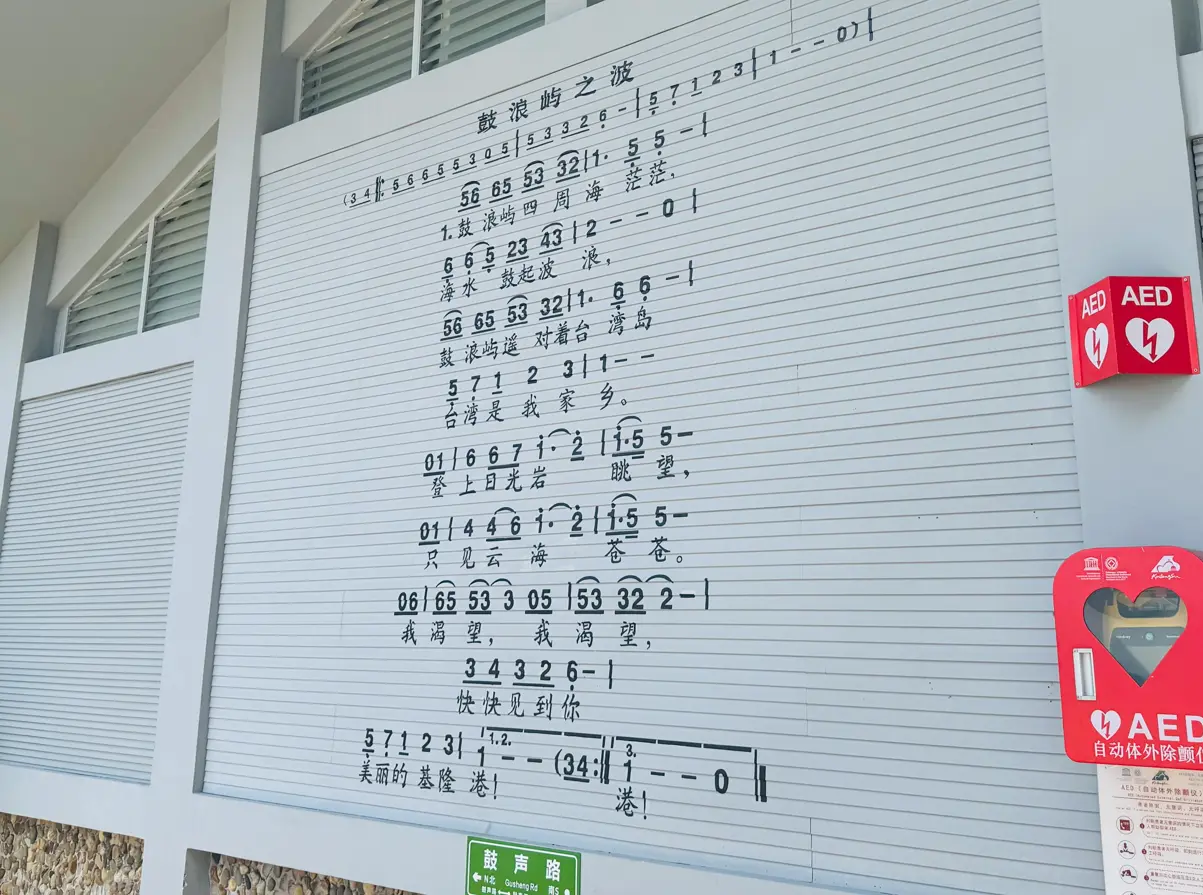 鼓浪屿之波
(3 4 ‖: 5 6 6 5 5 3 0 5 | 5 3 3 2 6 - | 5 7 1 2 3 | 1 - - 0) |
56 65 53 32 | 1· 5 5 - |
1.鼓浪屿四周海茫茫，
6 6 5 23 43 | 2 - - 0 |
海水鼓起波浪，
56 65 53 32 | 1· 6 6 - |
鼓浪屿遥对着台湾岛
5 7 1 2 3 | 1 - -
台湾是我家乡。
01 | 6 6 7 i· 2 | i·5 5 -
登上日光岩眺望，
01 | 4 4 6 i· 2 | i·5 5 -
只见云海苍苍。
06 | 65 53 3 05 | 53 32 2 - |
我渴望，我渴望，
3 4 3 2 6 - |
快快见到你
5 7 1 2 3 | 1.2. 1 - - (34 :‖ 3. 1 - - 0 ‖
美丽的基隆港！港！
AED AED
AED
自动体外除颤仪
鼓声路
N北 Gusheng Rd 南S